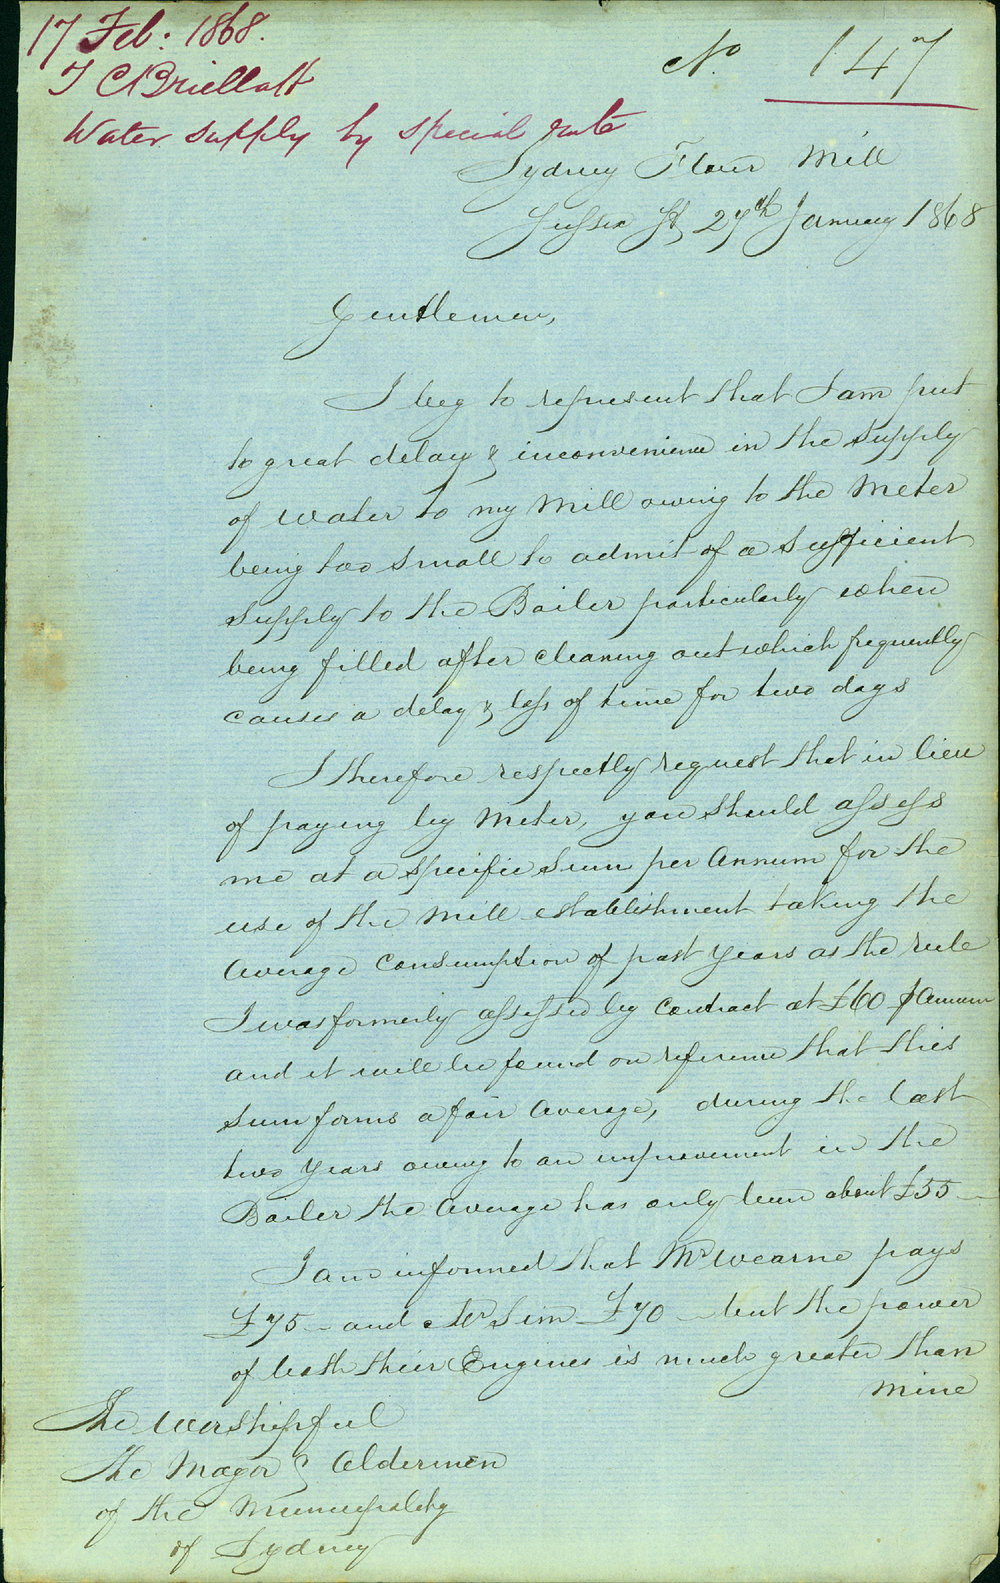 17 Feb: 1868.
T C Breillat
Water supply by special rate
No 147
Sydney Flour Mill
Sussex St, 27th January 1868
Gentlemen,
I beg to represent that I am put
to great delay & inconvenience in the supply
of water to my Mill owing to the Meter
being too small to admit of a sufficient
supply to the Boiler particularly when
being filled after cleaning out which frequently
causes a delay & loss of time for two days
I therefore respectly request that in lieu
of paying by Meter, you should assess
me at a specific sum per Annum for the
use of the Mill establishment taking the
average consumption of past years as the rule
I was formerly assessed by contract at £60 ⅌ Annum
and it will be found on reference that this
sum forms a fair average, during the last
two years owing to an improvement in the
Boiler the average has only been about £55 —
I am informed that Mr Wearne pays
£75 — and Mr Sim £70 — but the power
of both their Engines is much greater than
mine
The Worshipful
the Mayor & Aldermen
of the Municipality
of Sydney